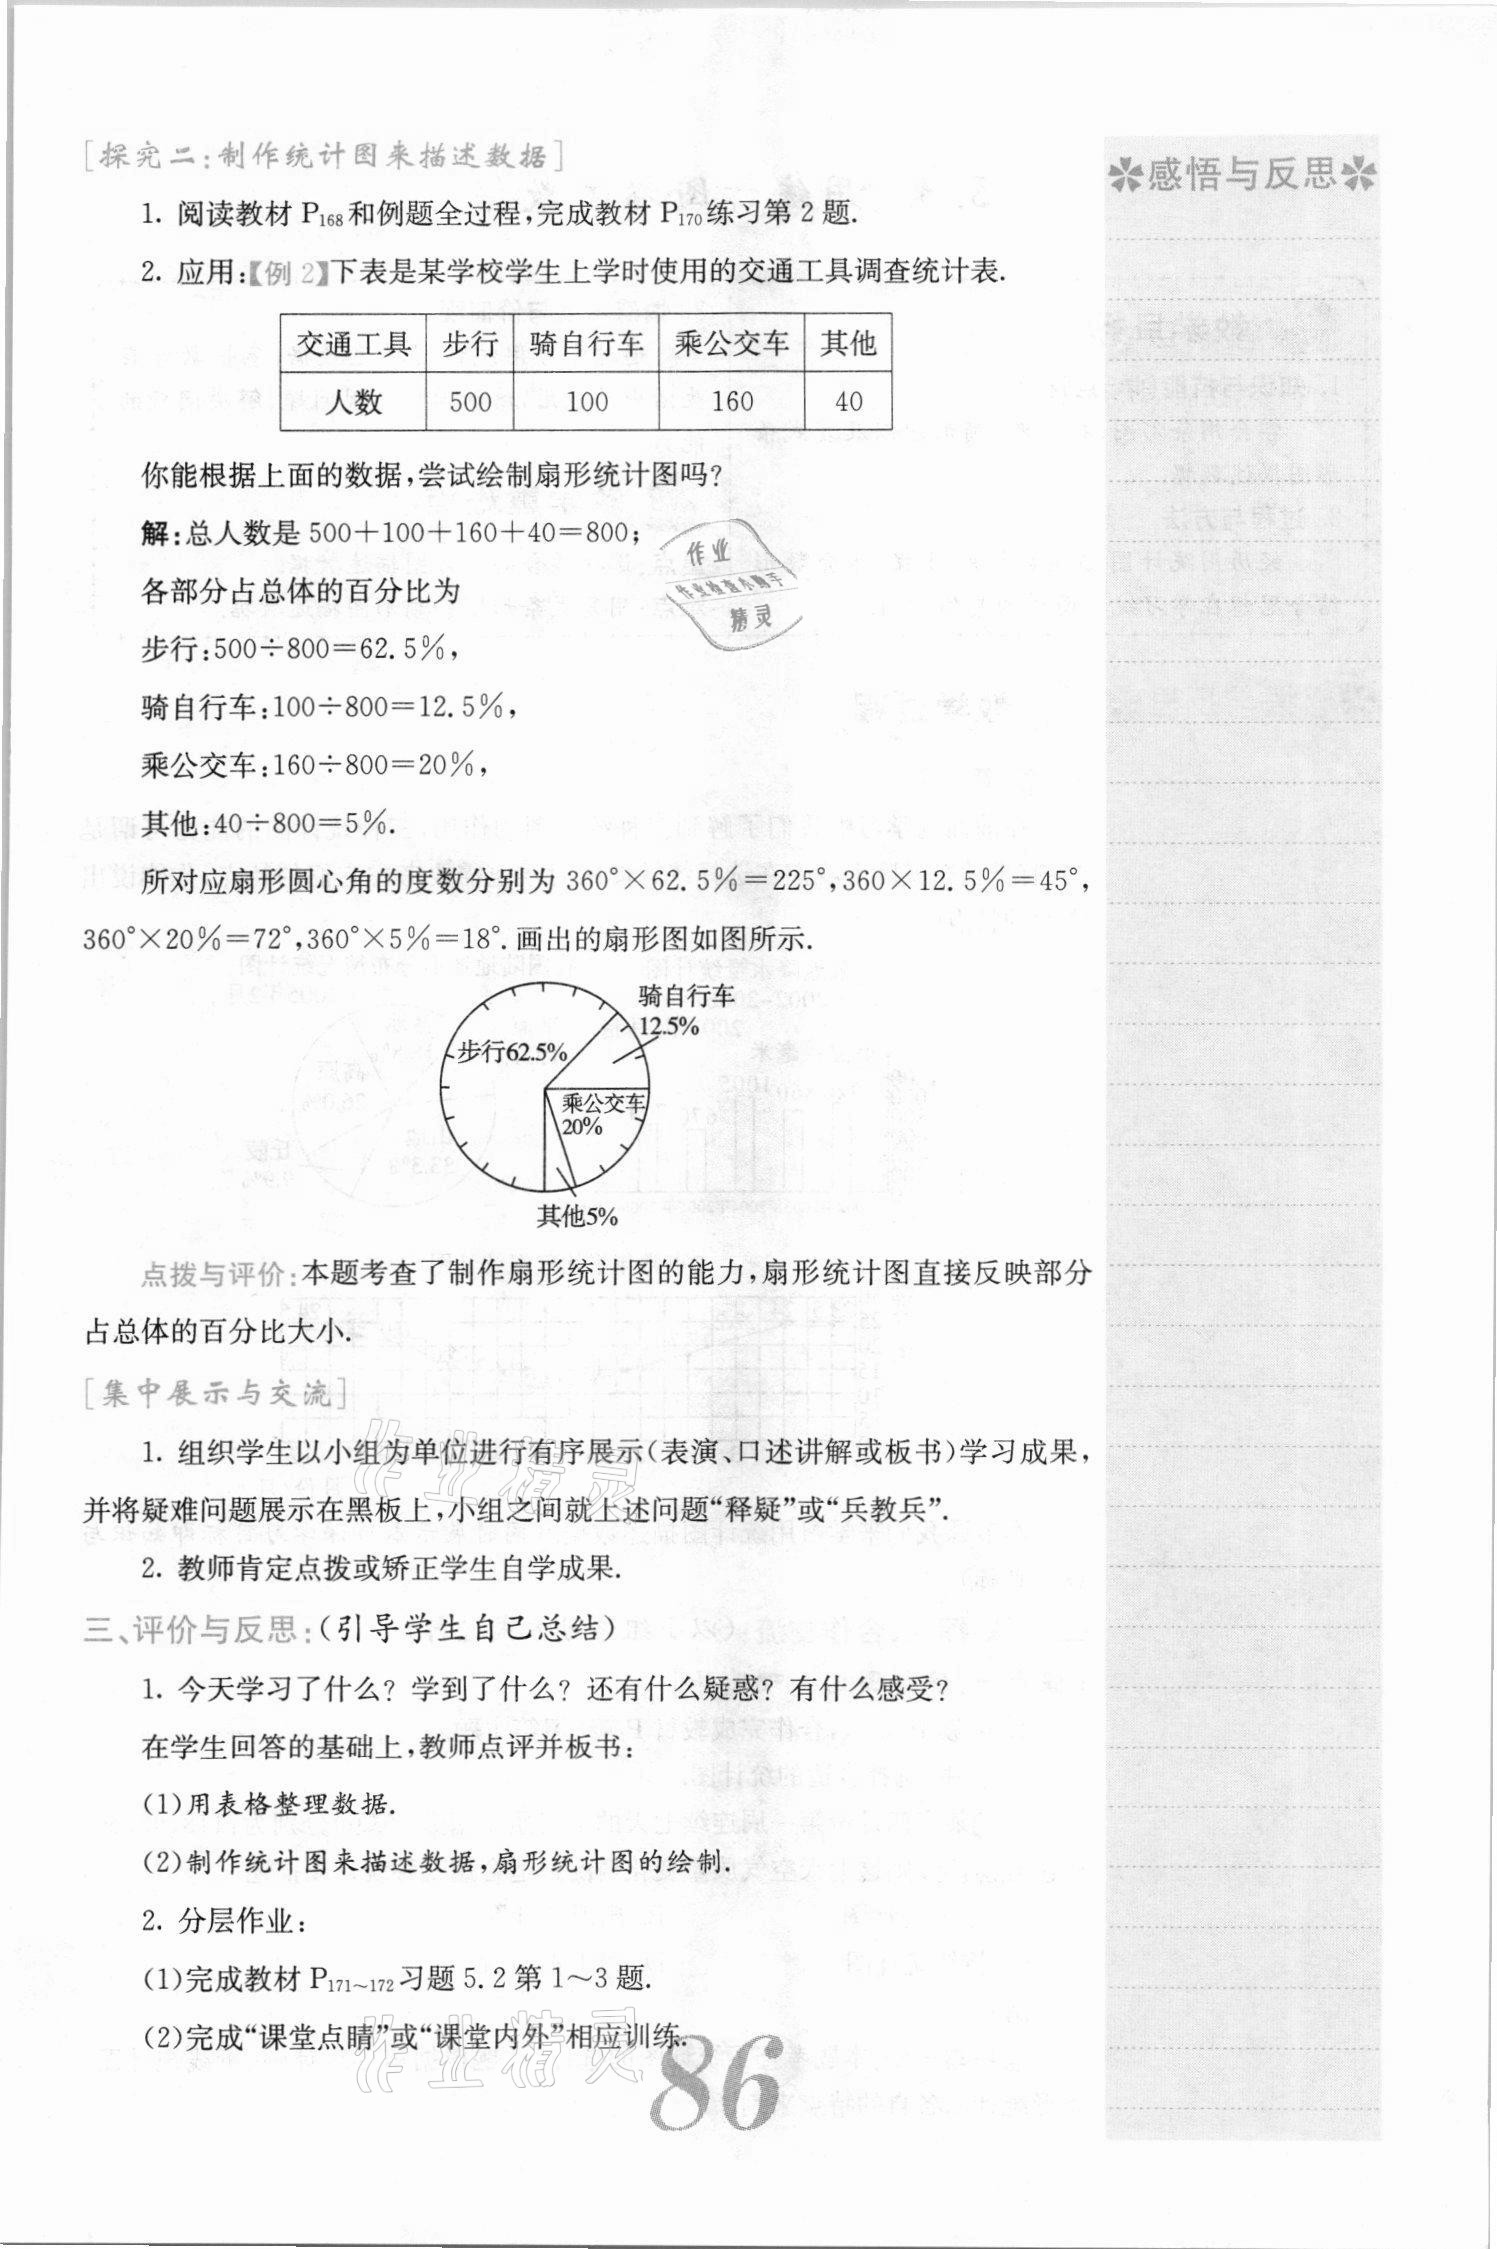 [探究二:制作统计图来描述数据]
✽感悟与反思✽
1. 阅读教材 P168 和例题全过程,完成教材 P170 练习第 2 题.
2. 应用:【例 2】下表是某学校学生上学时使用的交通工具调查统计表.
交通工具 步行 骑自行车 乘公交车 其他
人数 500 100 160 40
你能根据上面的数据,尝试绘制扇形统计图吗?
解:总人数是 500+100+160+40=800;
各部分占总体的百分比为
步行:500÷800=62.5%,
骑自行车:100÷800=12.5%,
乘公交车:160÷800=20%,
其他:40÷800=5%.
作业
作业检查小助手
精灵
所对应扇形圆心角的度数分别为 360°×62.5%=225°,360×12.5%=45°,
360°×20%=72°,360°×5%=18°.画出的扇形图如图所示.
骑自行车
12.5%
步行62.5%
乘公交车
20%
其他5%
点拨与评价:本题考查了制作扇形统计图的能力,扇形统计图直接反映部分
占总体的百分比大小.
[集中展示与交流]
1. 组织学生以小组为单位进行有序展示(表演、口述讲解或板书)学习成果,
并将疑难问题展示在黑板上,小组之间就上述问题“释疑”或“兵教兵”.
作业精灵
2. 教师肯定点拨或矫正学生自学成果.
三、评价与反思:(引导学生自己总结)
1. 今天学习了什么? 学到了什么? 还有什么疑惑? 有什么感受?
在学生回答的基础上,教师点评并板书:
(1)用表格整理数据.
(2)制作统计图来描述数据,扇形统计图的绘制.
2. 分层作业:
(1)完成教材 P171~172 习题 5.2 第 1~3 题.
(2)完成“课堂点睛”或“课堂内外”相应训练.
作业精灵
86